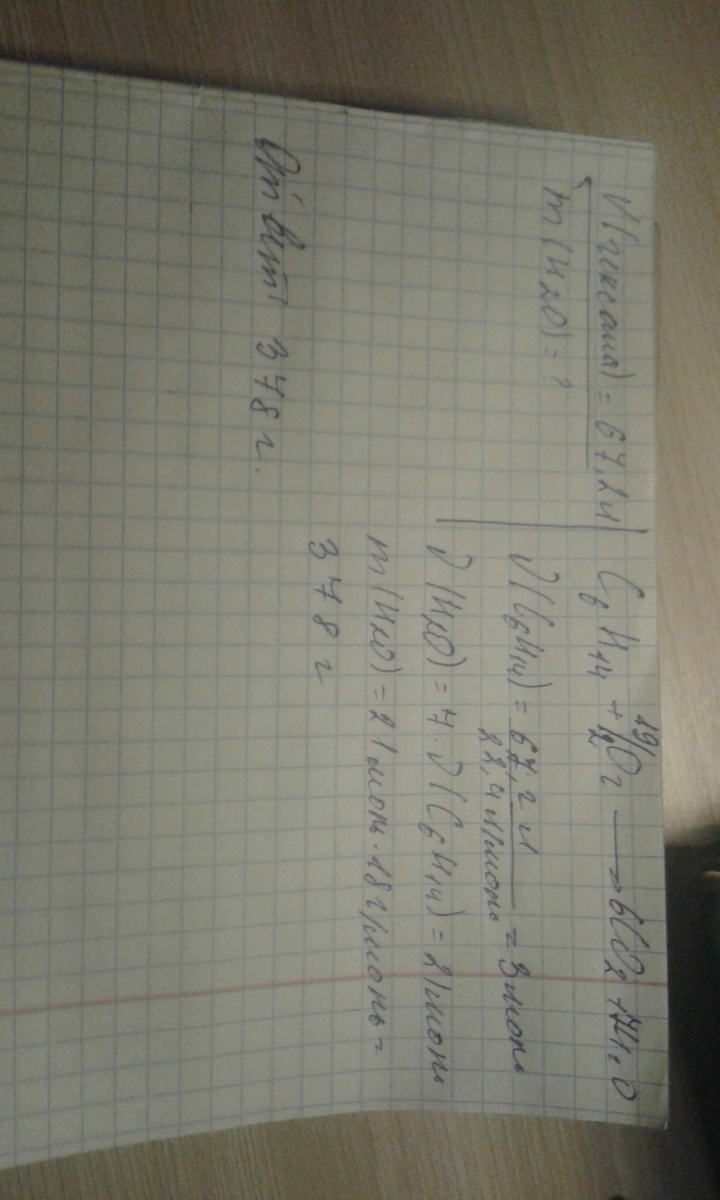 V(гексана) = 67,2л
m(H2O) = ?
C6H14 + 19/2O2 → 6CO2 + 7H2O
ν(C6H14) = 67,2 л / 22,4 л/моль = 3моль
ν(H2O) = 7·ν(C6H14) = 21моль
m(H2O) = 21моль·18г/моль =
378г
Ответ 378г.